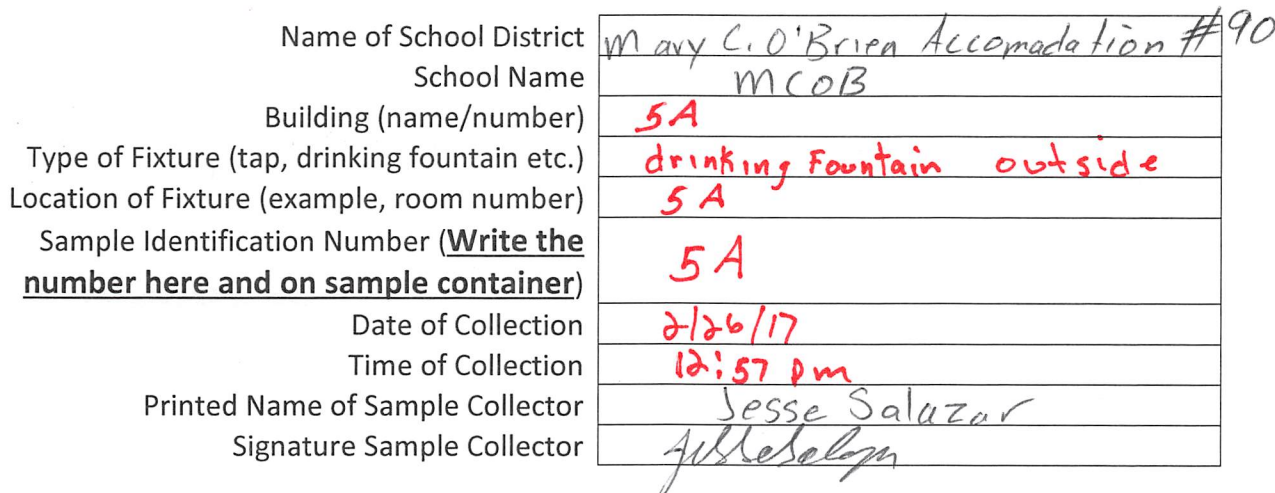 Name of School District Mary C. O'Brien Accomadation #90
School Name MCOB
Building (name/number) 5A
Type of Fixture (tap, drinking fountain etc.) drinking Fountain outside
Location of Fixture (example, room number) 5A
Sample Identification Number (Write the
number here and on sample container) 5A
Date of Collection 2/26/17
Time of Collection 12:57 pm
Printed Name of Sample Collector Jesse Salazar
Signature Sample Collector